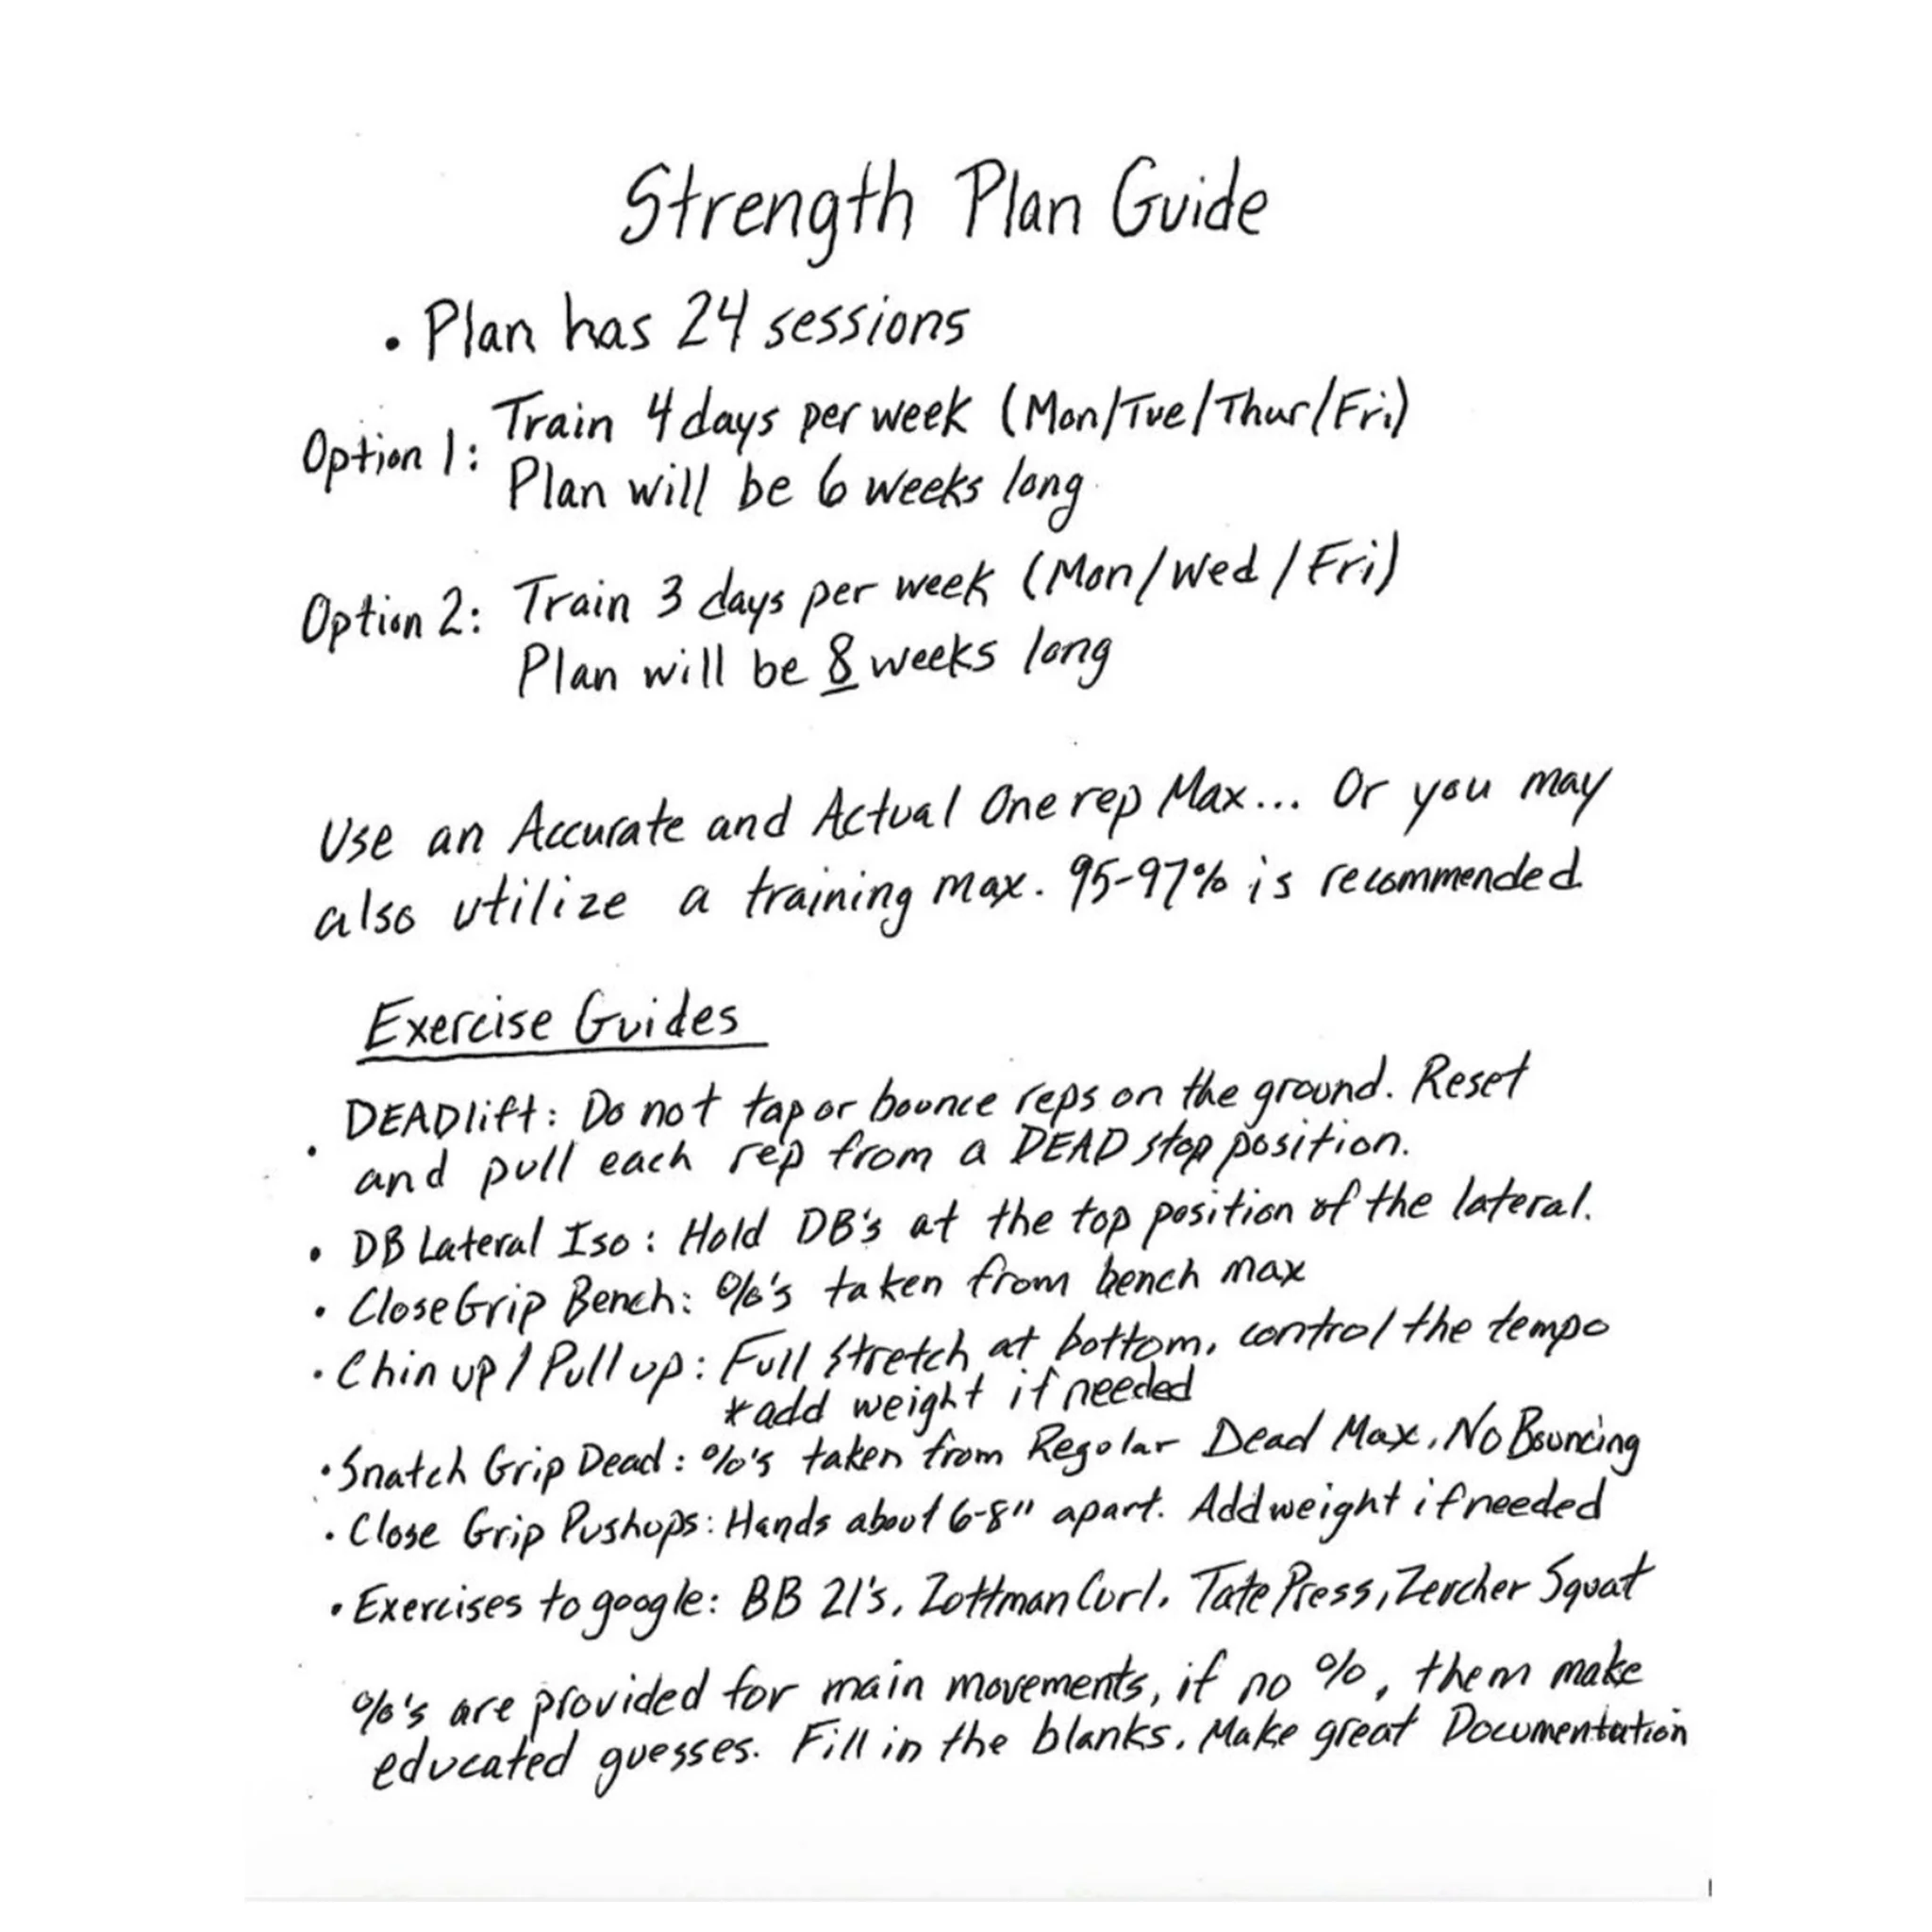 Strength Plan Guide
• Plan has 24 sessions
Option 1: Train 4 days per week (Mon/Tue/Thur/Fri)
Plan will be 6 weeks long
Option 2: Train 3 days per week (Mon/Wed/Fri)
Plan will be 8 weeks long
Use an Accurate and Actual One rep Max... Or you may
also utilize a training max. 95-97% is recommended
Exercise Guides
• DEADlift: Do not tap or bounce reps on the ground. Reset
and pull each rep from a DEAD stop position.
• DB Lateral Iso: Hold DB's at the top position of the lateral.
• Close Grip Bench: %'s taken from bench max
• Chin up / Pull up: Full stretch at bottom, control the tempo
*add weight if needed
• Snatch Grip Dead: %'s taken from Regular Dead Max. No Bouncing
• Close Grip Pushups: Hands about 6-8" apart. Add weight if needed
• Exercises to google: BB 21's, Zottman Curl, Tate Press, Zercher Squat
%'s are provided for main movements, if no %, them make
educated guesses. Fill in the blanks. Make great Documentation